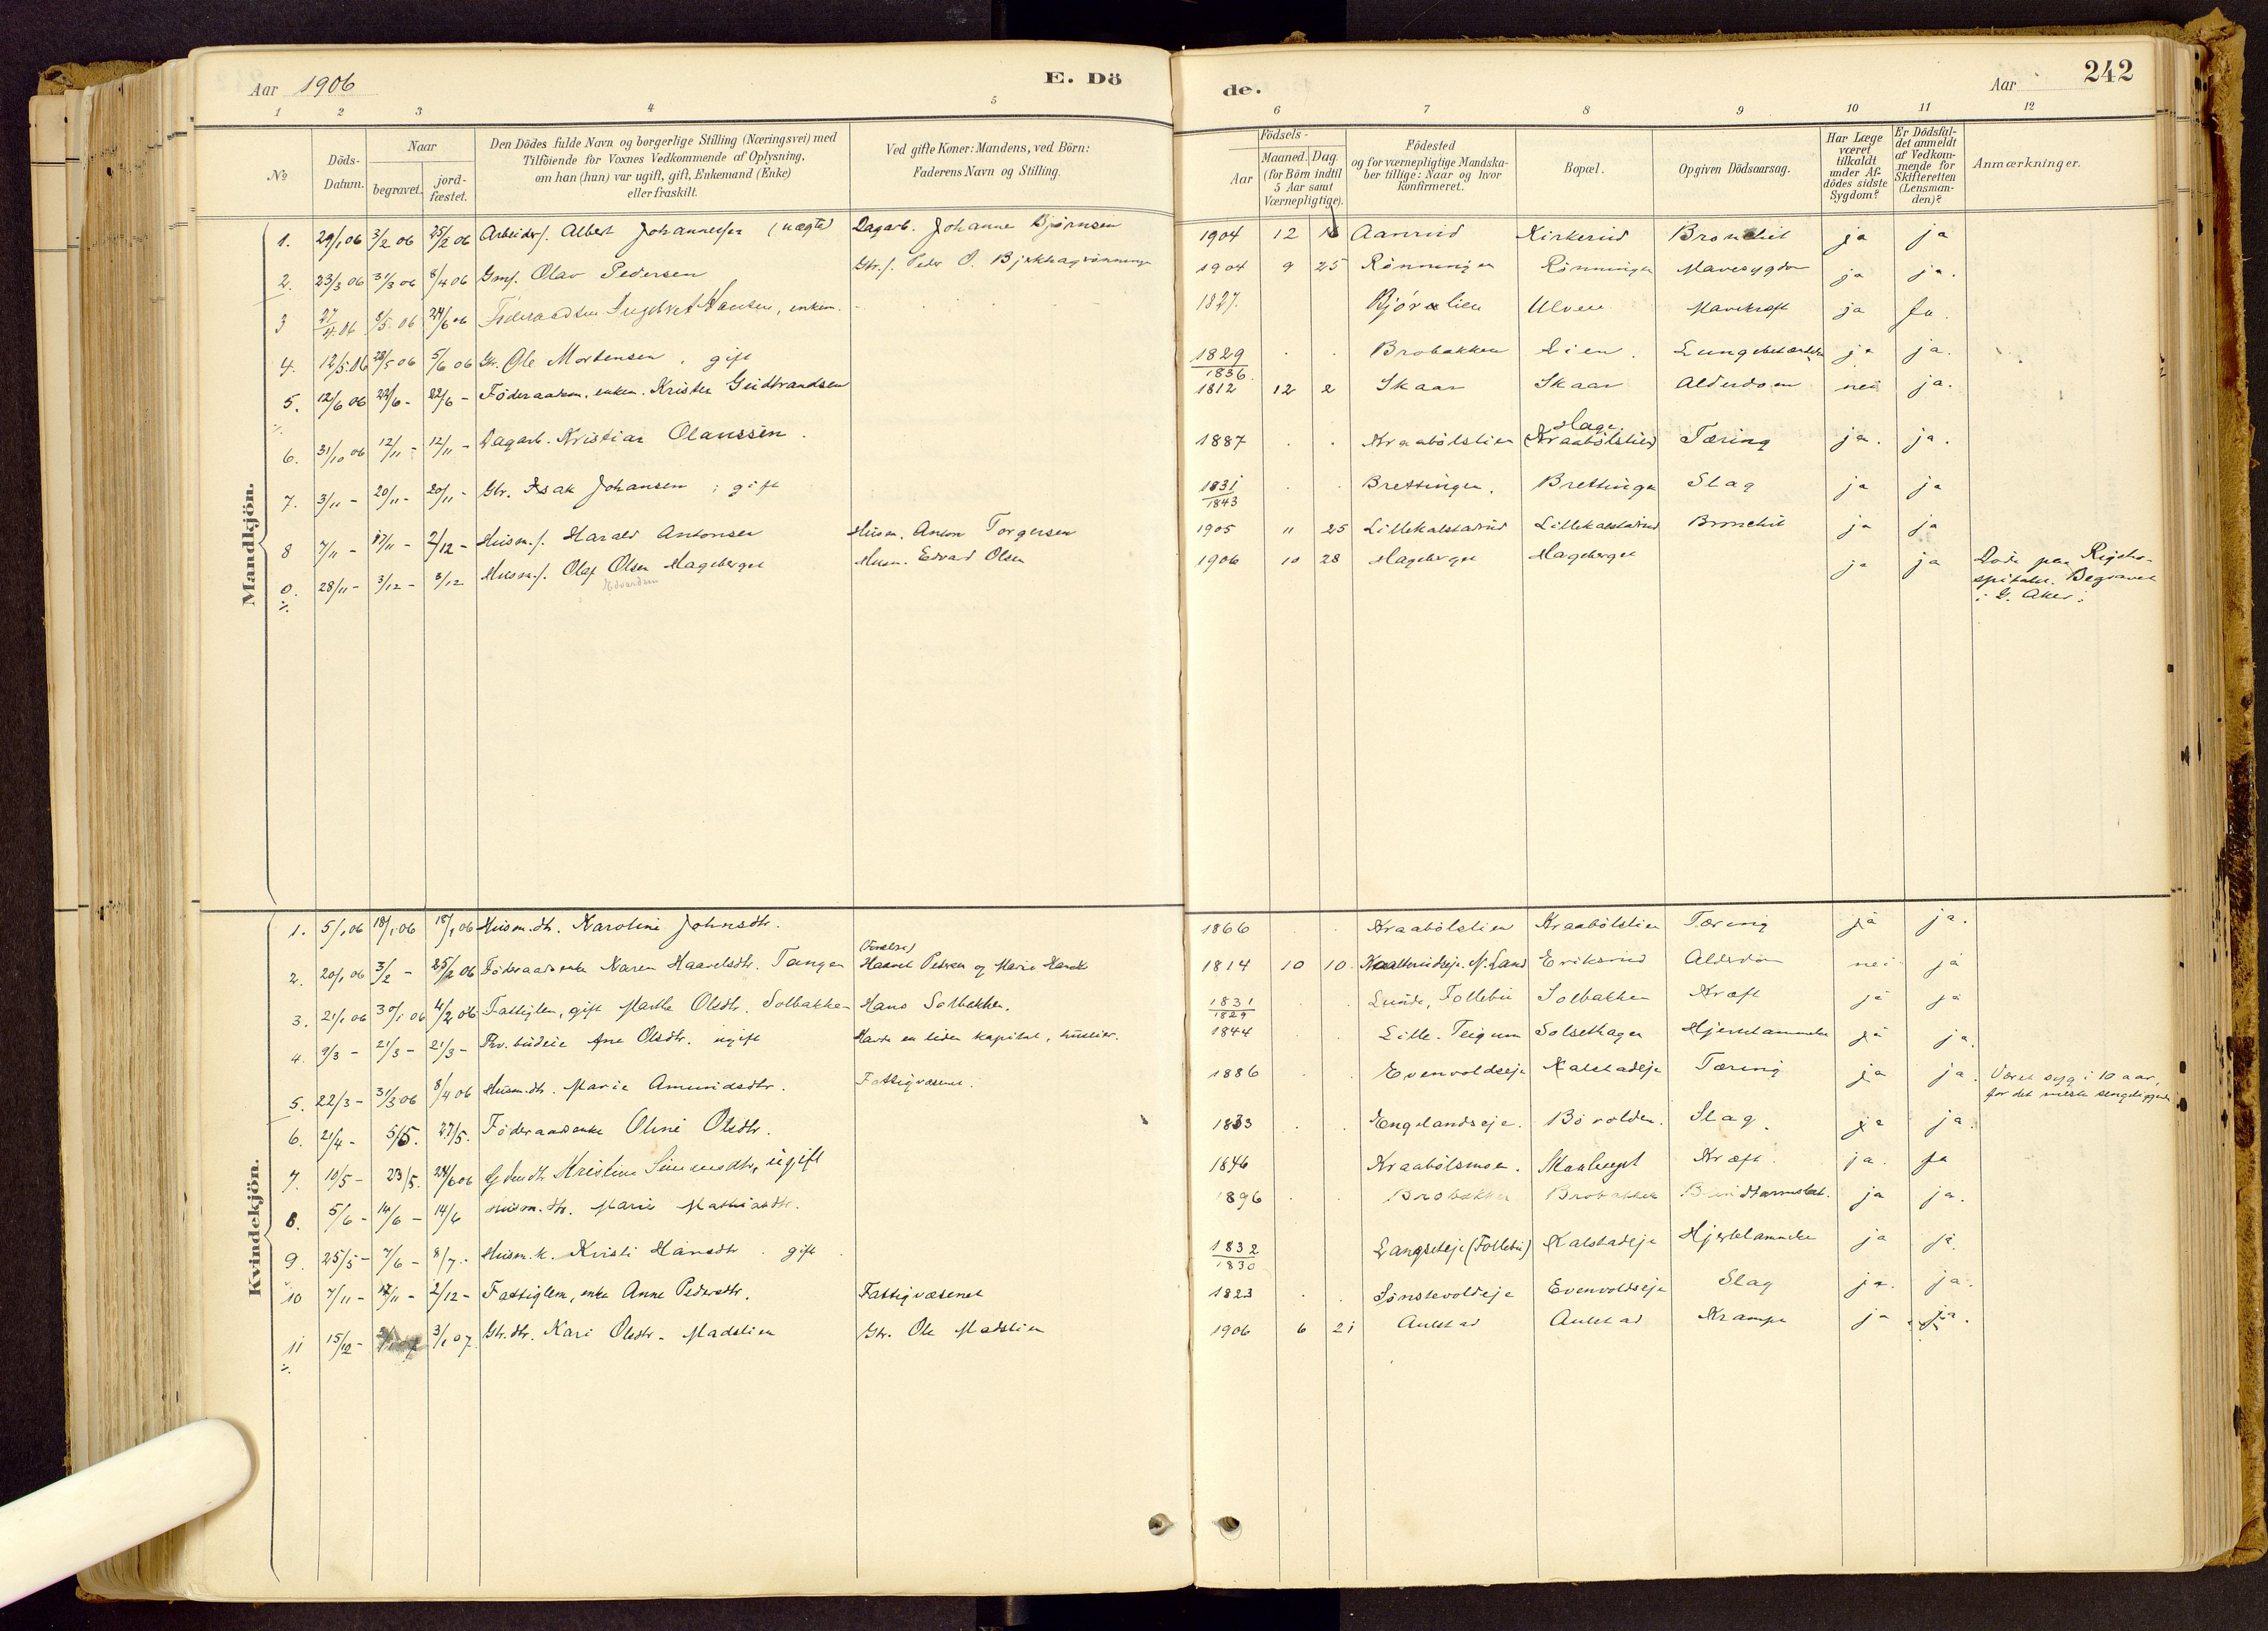 Aar 1906
E. Dö
de.
Aar
242
1 2 3 4 5 6 7 8 9 10 11 12
No
Döds-
Datum.
Naar
begravet.
jord-
fæstet.
Den Dödes fulde Navn og borgerlige Stilling (Næringsvei) med
Tilföiende for Voxnes Vedkommende af Oplysning,
om han (hun) var ugift, gift, Enkemand (Enke)
eller fraskilt.
Ved gifte Koner: Mandens, ved Börn:
Faderens Navn og Stilling.
Födsels-
Aar
Maaned. Dag
(for Börn indtil
5 Aar samt
Værnepligtige).
Födested
og for værnepligtige Mandska-
ber tillige: Naar og hvor
konfirmeret.
Bopæl.
Opgiven Dödsaarsag.
Har Læge
været
tilkaldt
under Af-
dödes sidste
Sygdom?
Er Dödsfal-
det anmeldt
af Vedkom-
mende for
Skifteretten
(Lensman-
den)?
Anmærkninger.
Mandkjön.
1. 29/1 06 3/2 06 25/2 06 Arbeiders. Albert Johannessen (uægte) Dagarb. Johanne Bjørnsen 1904 12 Aanrud Kirkerud Bronchit ja ja
2. 23/3 06 31/3 06 8/4 06 Gms. Olav Pedersen Gbr.s. Peder O. 1904 9 25 Rönningen Rönningen Mavesygdom ja ja.
3 27/4 06 8/5 06 24/6 06 Föderaadsm Hansen, enkem. 1827. Bjørnlien Ulven Mavekræft ja ja.
4. 12/5 06 28/5 06 5/6 06 Gbr. Ole Mortensen, gift 1829 1836. Brobakken Lien. Lungebetændelse ja ja.
5. 12/6 06 22/6 - 22/6 - Föderaadsm. enkem. Krister Gudbrandsen 1812 12 2 Skaar Skaar Alderdom nei ja.
6. 31/10 06 12/11 - 12/11 - Dagarb. Kristian Olaussen. 1887 Kraabölslien Hage. (Kraabölslien) Tæring ja. ja.
7. 3/11 - 20/11 - 20/11 - Gbr. Isak Johansen; gift 1831 1843 Brettingen. Brettingen Slag ja ja
8 7/11 - 17/11 - 2/12 - Husm.s. Harald Antonsen Husm. Anton Torgersen 1905 11 25 Lillekalstadrud Lillekalstadrud Bronchit ja ja
9. 28/11 - 3/12 - 3/12 Husm.s. Olaf Olsen Hageberget Edvardsen Husm. Edvard Olsen 1906 10 28 Hageberget Hageberget ja ja Döde paa Rigsho-
spitalet. Begravet
i G. Aker.
Kvindekjön.
1. 5/1 06 18/1 06 18/1 06 Husm.dtr. Karoline Johnsdtr. 1866 Kraabölslien Kraabölslien Tæring ja ja.
2. 20/1 06 3/2 - 25/2 06 Föderaadsenke Karen Haavelsdtr. Tangen (Forældre) Haavel Pedersen og Marie 1814 10 10. N. Land Eriksrud Alderdom nei ja
3. 21/1 06 30/1 06 4/2 06 Fattiglem, gift Marthe Olsdtr. Solbakken Hans Solbakken. 1831 1829 Lunde, Follebu Solbakken Kræft ja ja
4. 9/3 - 21/3 - 21/3 - Prv. budeie Ane Olsdtr. ugift Havde en liden kapital, huslier. 1844 Lille-Teigum Solsethagen Hjertelammelse ja ja.
5. 22/3 - 31/3 06 8/4 06 Husm.dtr. Marie Amundsdtr. Fattigvæsenet. 1886 Evenvoldseje Kalstadeje Tæring ja ja. Været syg i 10 aar,
for det meste sengeliggende
6. 21/4 - 5/5. 27/5. Föderaadsenke Oline Olsdtr. 1833 Engelandseje. Bövolden. Slag. ja ja.
7. 10/5 - 23/5. 24/6 06 Kristine Simensdtr, ugift 1846 Kraabölsmoen. Kræft. ja. ja
8. 5/6 - 14/6 - 14/6 Husm.dtr. Marie Mathiasdtr. 1896 Brobakken Brobakken Blindtarmsbet. ja ja.
9. 25/5 - 7/6 - 8/7 - Husm.k. Kristi Hansdtr. gift 1832 1830 Langseteje (Follebu) Kalstadeje Hjertelammelse ja ja.
10 7/11 - 17/11 - 2/12 - Fattiglem, enke Anne Pedersdtr. Fattigvæsenet 1823 Sönstevoldeje Evenvoldseje Slag ja. ja.
11 15/12 - 3/1 07. Gbr.dtr. Kari Olsdtr. Madslien Gbr. Ole Madslien 1906 6 21 Aulstad Aulstad Krampe ja ja.